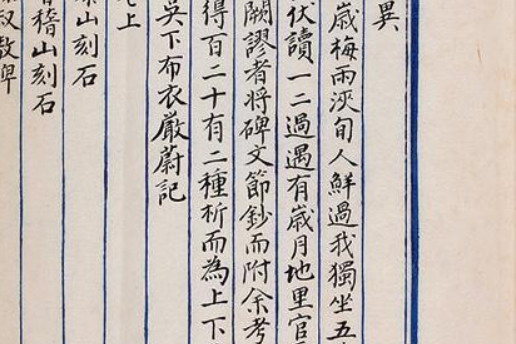 異
歲梅雨浹旬人鮮過我獨坐五
伏讀一二過遇有歲月地里官
闕謬者將碑文節鈔而附余考
得百二十有二種析而為上下
吳下布衣嚴蔚記
上
山刻石
稽山刻石
叔敖碑